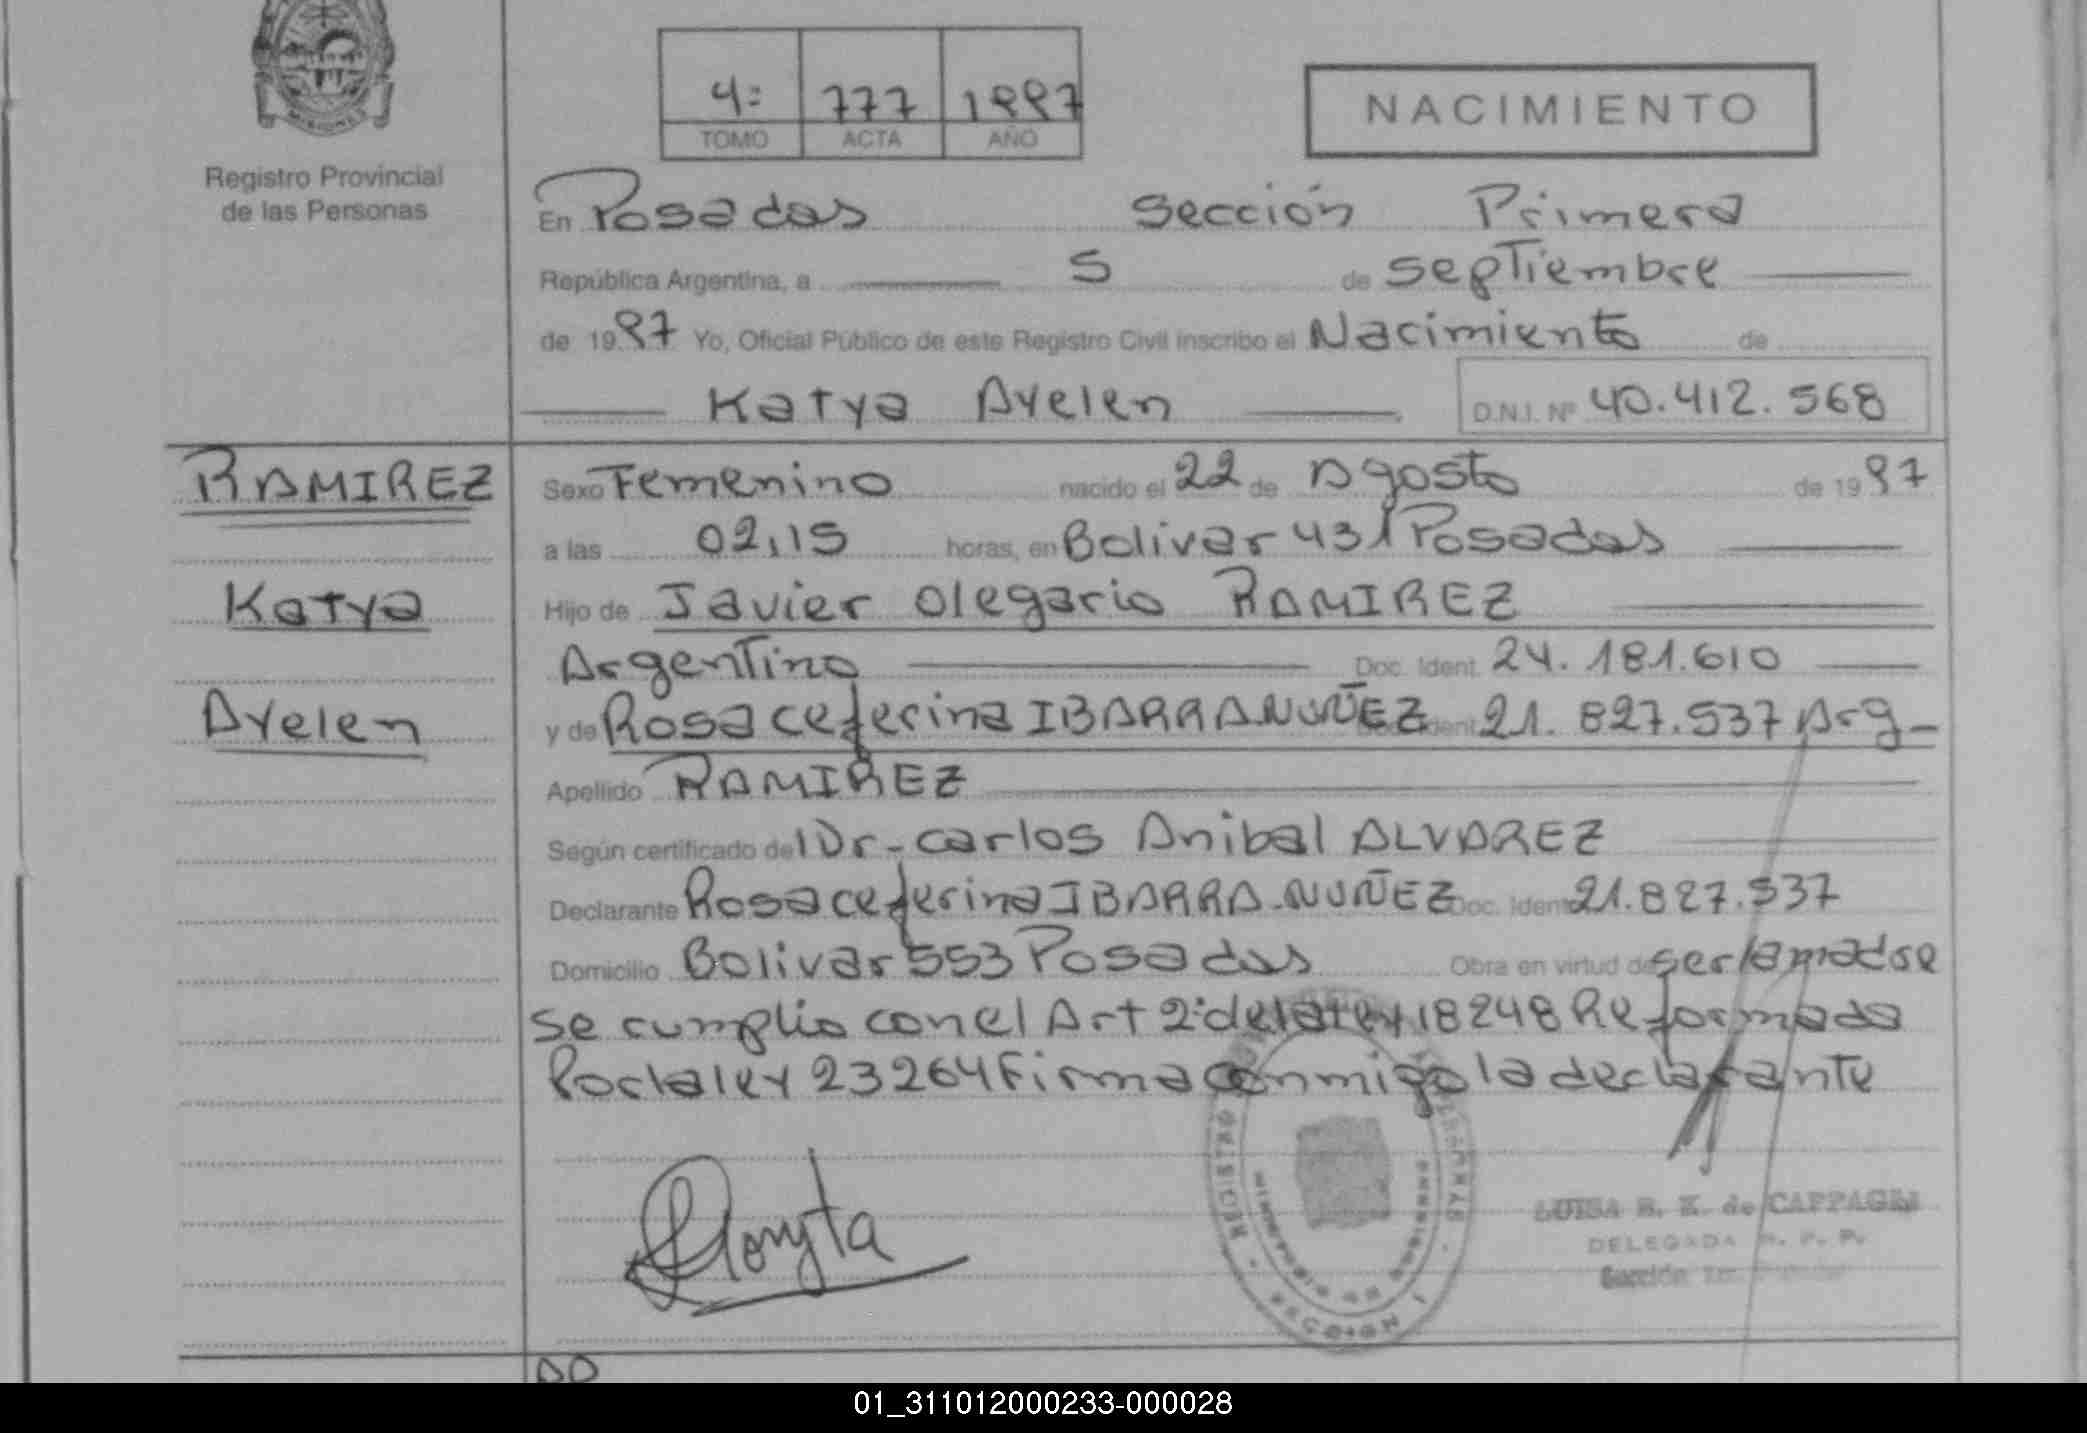 MISIONES
Registro Provincial
de las Personas
4º 777 1997
TOMO ACTA AÑO
NACIMIENTO
En Posadas Sección Primera
República Argentina, a 5 de septiembre
de 1997 Yo, Oficial Público de este Registro Civil inscribo el Nacimiento de
Katya Ayelen D.N.I. Nº 40.412.568
RAMIREZ
Katya
Ayelen
Sexo Femenino nacido el 22 de Agosto de 1997
a las 02,15 horas, en Bolivar 431 Posadas
Hijo de Javier Olegario RAMIREZ
Argentino Doc. Ident. 24.181.610
y de Rosa ceferina IBARRA NUÑEZ Doc. Ident. 21.827.537 Arg-
Apellido RAMIREZ
Según certificado del Dr. carlos Anibal ALVAREZ
Declarante Rosa ceferina IBARRA NUÑEZ Doc. Ident. 21.827.537
Domicilio Bolivar 553 Posadas Obra en virtud de ser la madre
se cumplio con el Art 2º de la ley 18248 Reformada
Por la ley 23264 Firma conmigo la declarante
REGISTRO
SECCION 1
LUISA B. K. de
DELEGADA R. P. P.
Sección
01_311012000233-000028